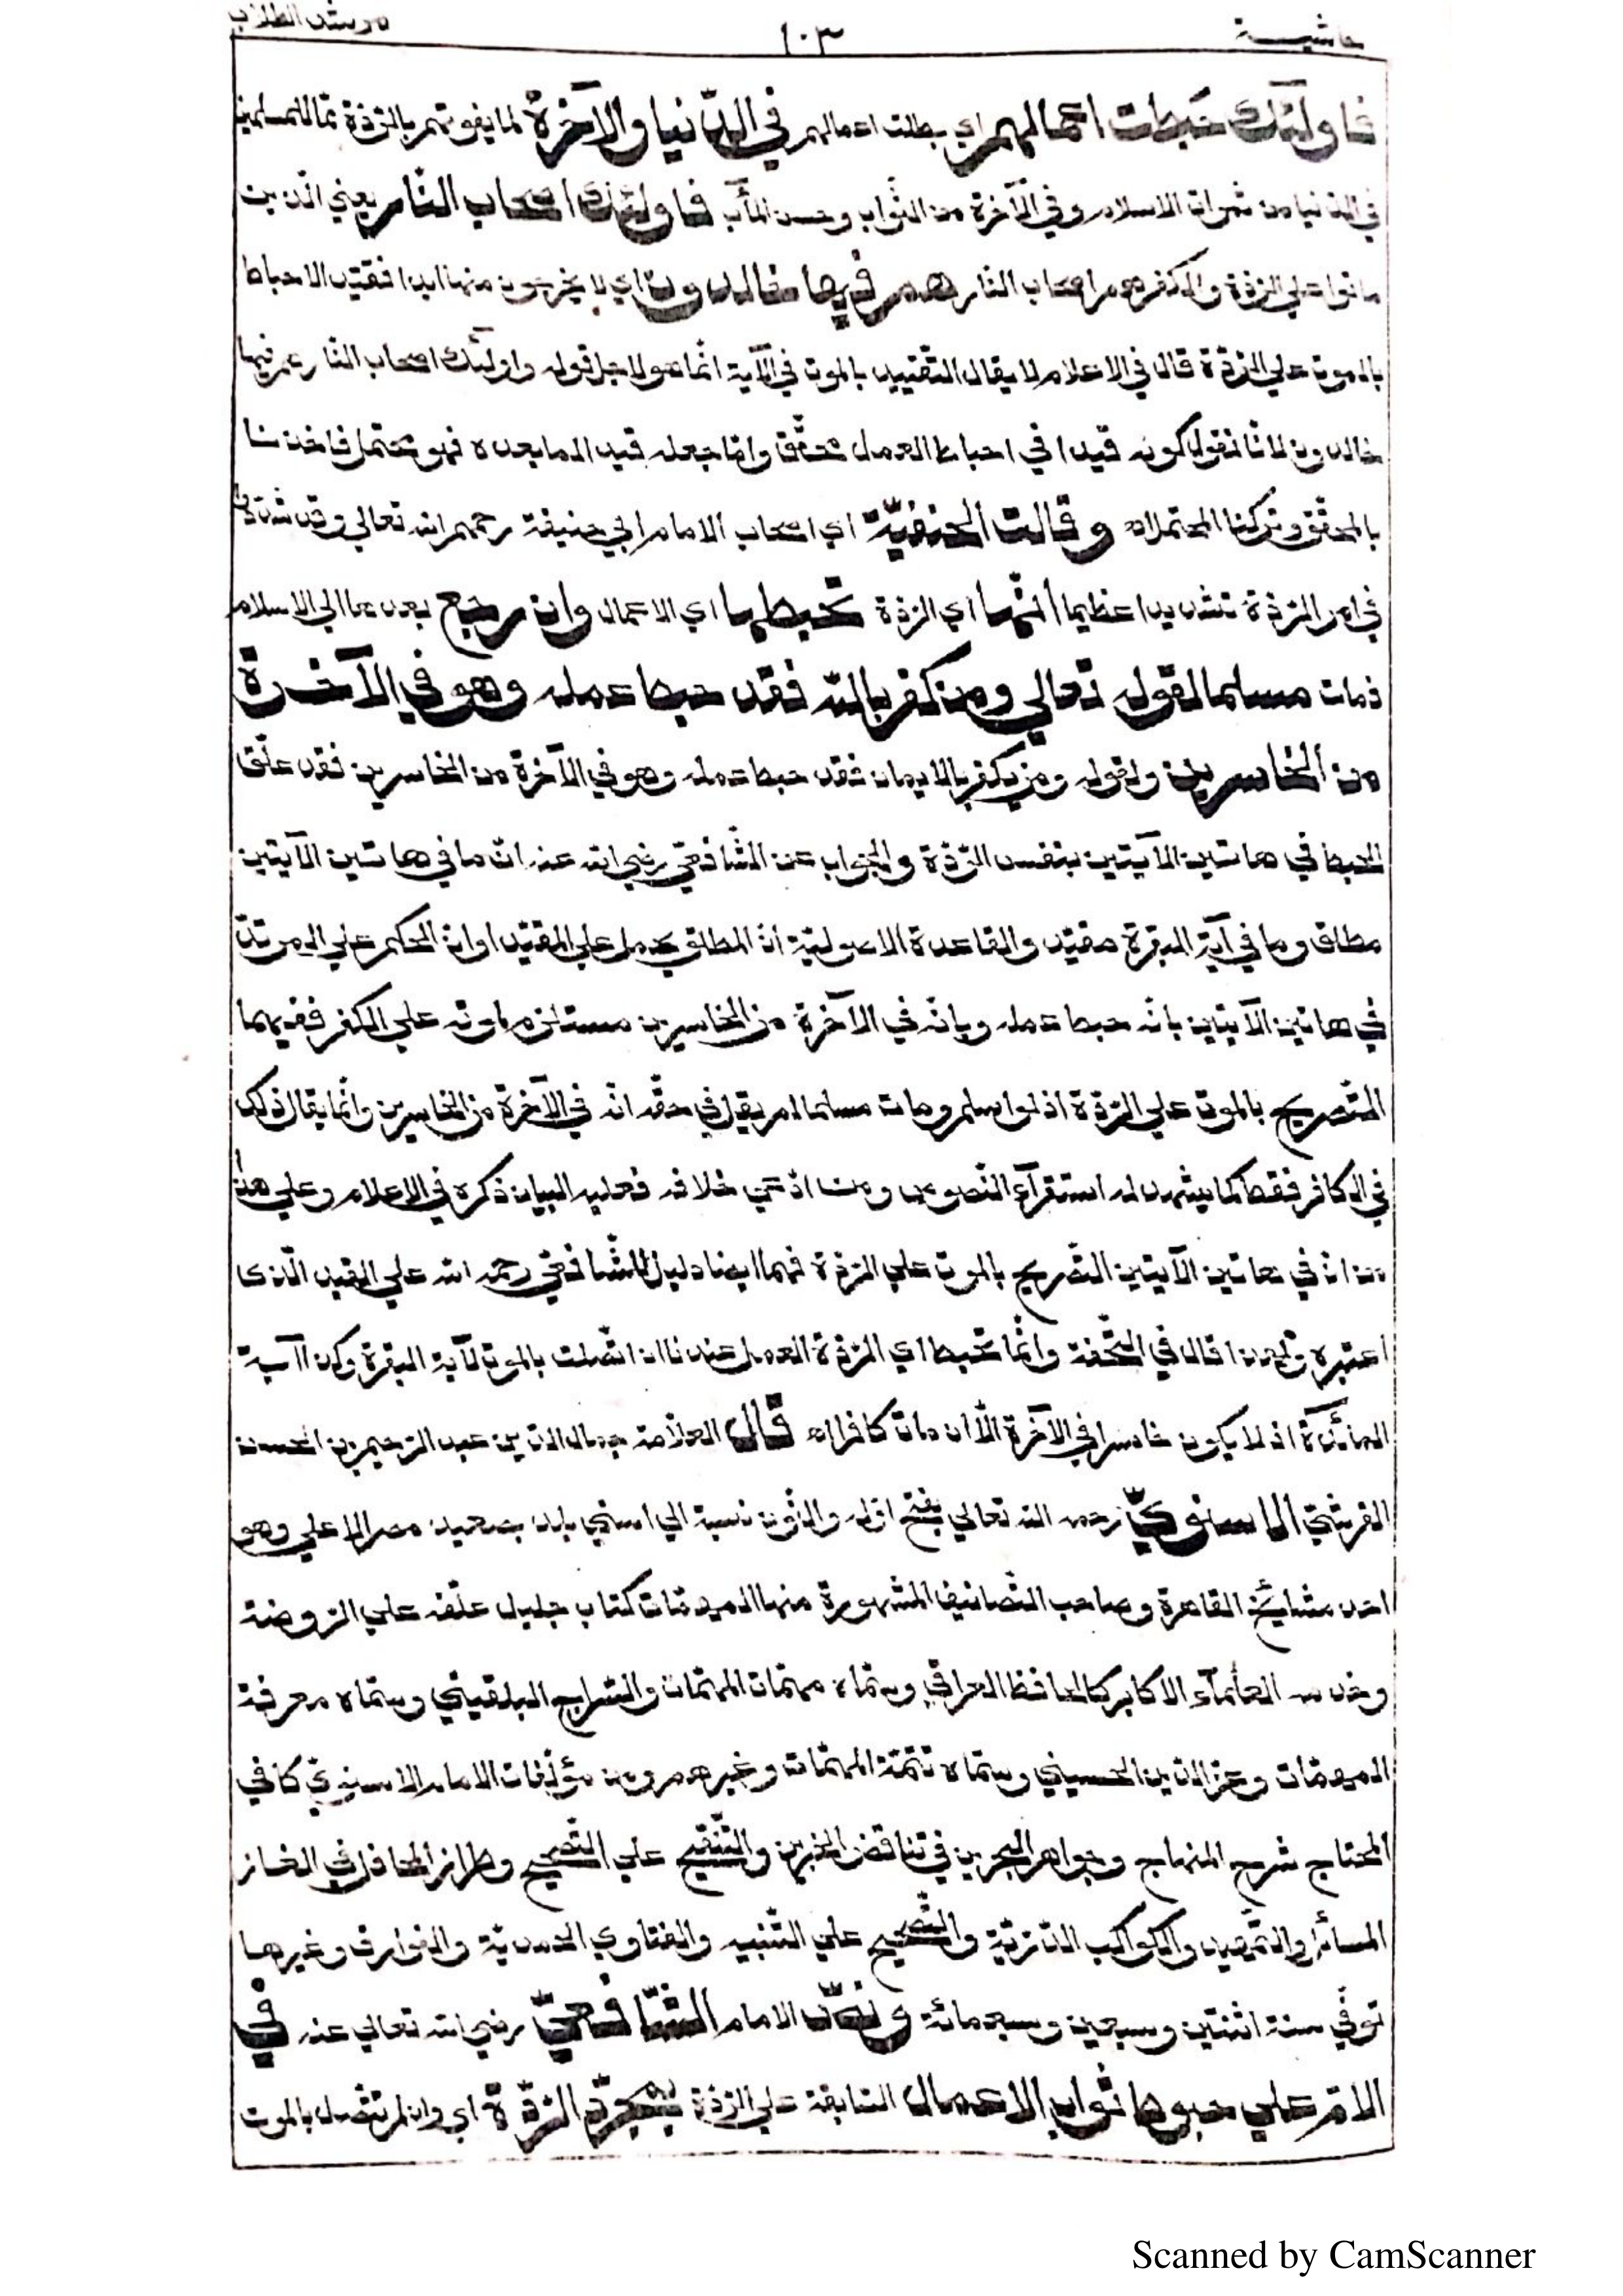 حاشيـــة ١٠٣ مرشد الطلاب
فاولئك حبطت اعمالهم اي بطلت اعمالهم في الدّنيا والآخرة لما يفوتهم بالرّدّة ممّا للمسلمين
في الدّنيا من ثمرات الاسلام وفي الآخرة من الثّواب وحسن المآب فاولئك اصحاب النّار يعني الّذين
ماتوا على الرّدّة والكفر هم اصحاب النّار هم فيها خالدون اي لا يخرجون منها ابدا فقيّد الاحباط
بالموت على الرّدّة قال في الاعلام لا يقال التّقييد بالموت في الآية انّما هو لاجل قوله واولئك اصحاب النّار هم فيها
خالدون لانّا نقول كونه قيدا في احباط العمل محقّق وامّا جعله قيد الما بعده فهو محتمل فاخذنا
بالمحقّق وتركنا المحتمل اه وقالت الحنفيّة اي اصحاب الامام ابي حنيفة رحمهم الله تعالى وقد شدّدوا
في امر الرّدّة تشديدا عظيما انّها اي الرّدّة تحبطها اي الاعمال وان رجع بعدها الى الاسلام
فمات مسلما لقوله تعالي ومن يكفر بالله فقد حبط عمله وهو في الآخرة
من الخاسرين ولقوله ومن يكفر بالايمان فقد حبط عمله وهو في الآخرة من الخاسرين فقد علّق
الحبط في هاتين الآيتين بنفس الرّدّة والجواب عن الشّافعيّ رضي الله عنه انّ ما في هاتين الآيتين
مطلق وما في آية البقرة مقيّد والقاعدة الاصوليّة انّ المطلق يحمل على المقيّد او انّ الحكم علي المرتدّ
في هاتين الآيتين بانّه حبط عمله وبانّه في الآخرة من الخاسرين مستلزم لموته علي الكفر ففيهما
التّصريح بالموت علي الرّدّة اذ لو اسلم ومات مسلما لم يقل في حقّه انّه في الآخرة من الخاسرين وانّما يقال ذلك
في الكافر فقط كما يشهد له استقرآء النّصوص ومن ادّعي خلافه فعليه البيان ذكره في الاعلام وعلي هذا
من انّ في هاتين الآيتين التّصريح بالموت علي الرّدّة فهما ايضا دليل للشّافعيّ رحمه الله علي القيد الّذي
اعتبره ولهذا قال في التّحفة وانّما تحبط اي الرّدّة العمل عندنا ان اتّصلت بالموت لآية البقرة وكذا آية
المائدة اذ لا يكون خاسرا في الآخرة الّا ان مات كافرا اه قال العلّامة جمال الدّين عبد الرّحيم بن الحسن
القرشيّ الاسنويّ رحمه الله تعالي بفتح اوّله والنّون نسبة الي اسني بلد بصعيد مصر الاعلي وهو
احد مشايخ القاهرة وصاحب التّصانيف المشهورة منها المهمّات كتاب جليل علّقه علي الرّوضة
وخدمه العلمآء الاكابر كالحافظ العراقي وسمّاه مهمّات المهمّات والسّراج البلقيني وسمّاه معرفة
المهمّات وعزّ الدّين الحسيني وسمّاه تتمّة المهمّات وغيرهم ومن مؤلّفات الامام الاسنويّ كافي
المحتاج شرح المنهاج وجواهر البحرين في تناقض الخبرين والتّنقيح علي التّصحيح وطراز المحافل في الغاز
المسائل والتّمهيد والكواكب الدّرّيّة والتّصحيح علي التّنبيه والفتاوي الحمويّة والفوارق وغيرها
توفّي سنة اثنتين وسبعين وسبعمائة ونصّ الامام الشّافعيّ رضي الله تعالي عنه في
الامّ علي حبوط ثواب الاعمال السّابقة علي الرّدّة بمجرّد الرّدّة اي وان لم تتّصل بالموت
Scanned by CamScanner